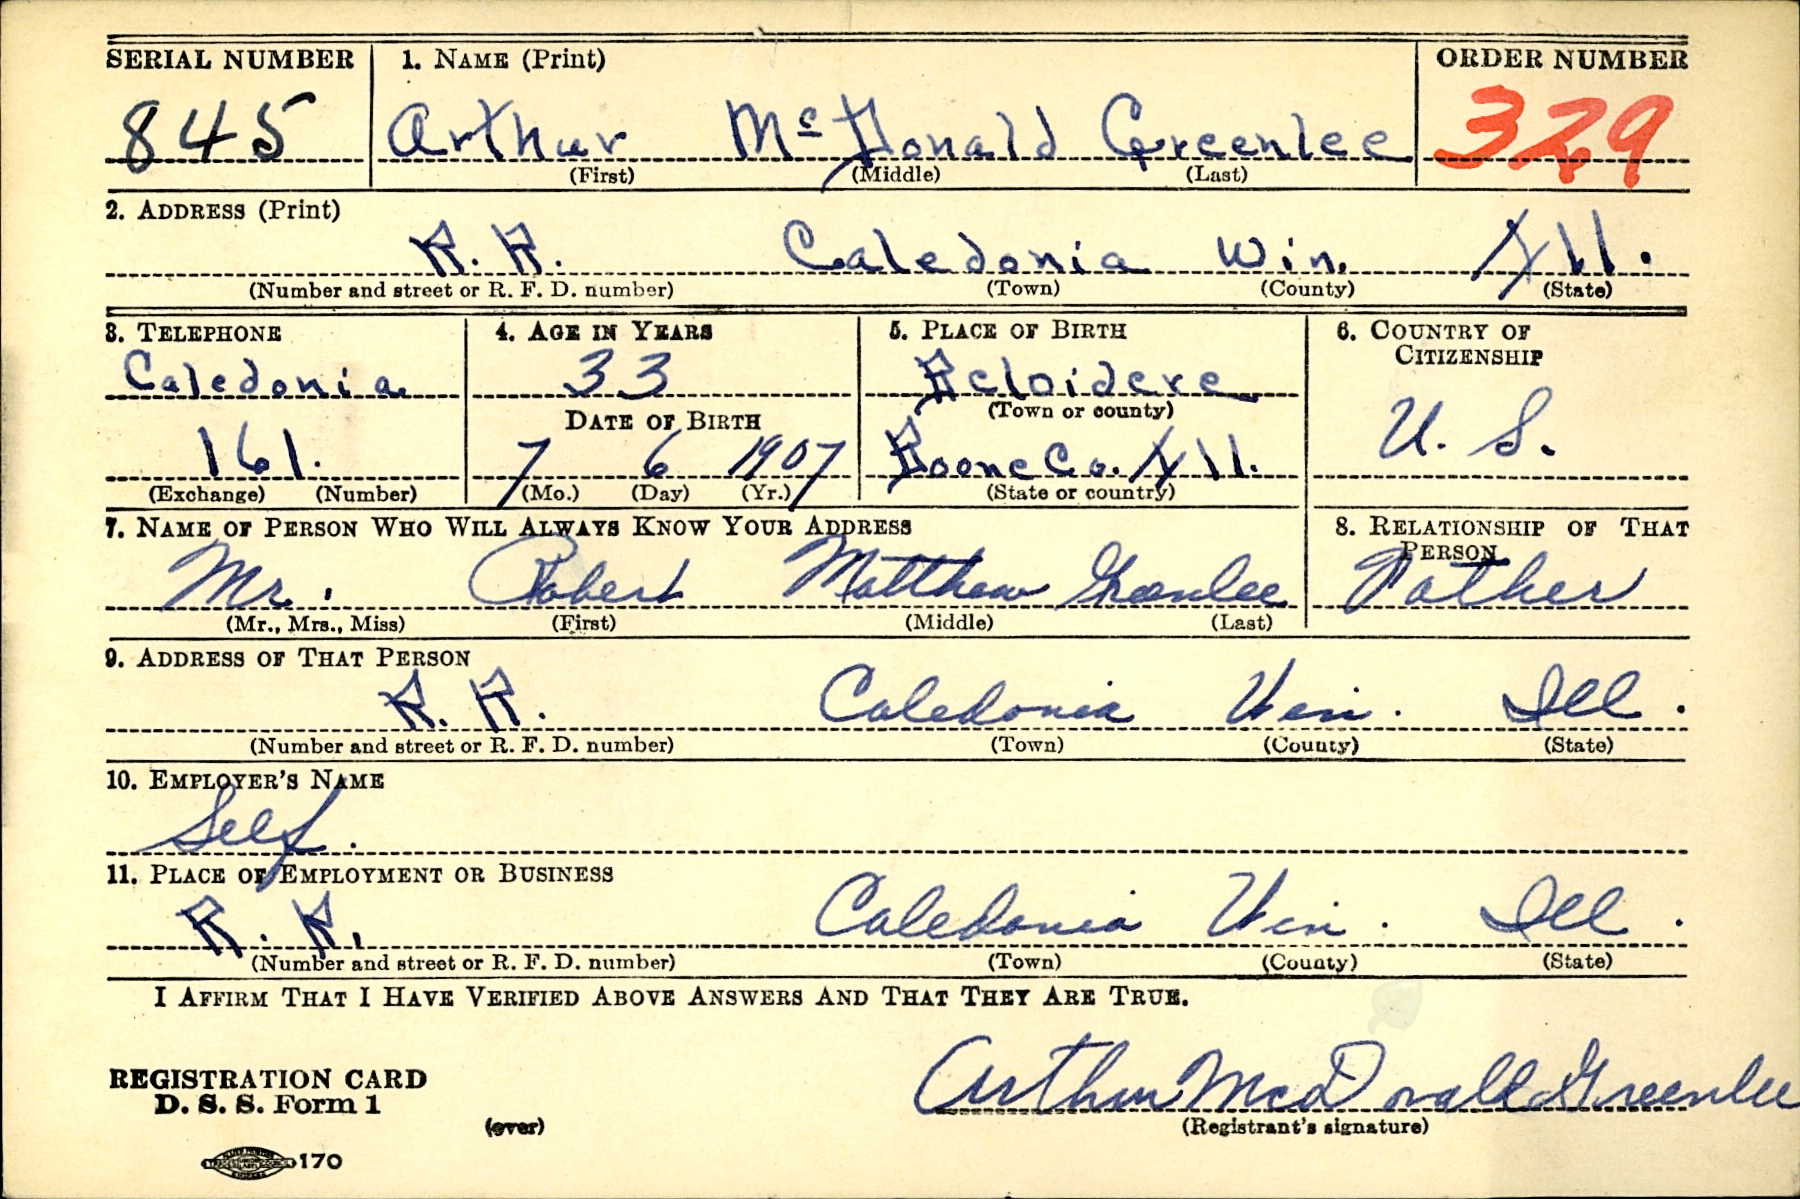 SERIAL NUMBER 1. NAME (Print) ORDER NUMBER
845 Arthur McDonald Greenlee 329
(First) (Middle) (Last)
2. ADDRESS (Print)
R. R. Caledonia Win. Ill.
(Number and street or R. F. D. number) (Town) (County) (State)
3. TELEPHONE 4. AGE IN YEARS 5. PLACE OF BIRTH 6. COUNTRY OF CITIZENSHIP
Caledonia 33 Belvidere
DATE OF BIRTH (Town or county) U. S.
161. 7 6 1907 Boone Co. Ill.
(Exchange) (Number) (Mo.) (Day) (Yr.) (State or country)
7. NAME OF PERSON WHO WILL ALWAYS KNOW YOUR ADDRESS 8. RELATIONSHIP OF THAT PERSON
Mr. Robert Matthew Greenlee Father
(Mr., Mrs., Miss) (First) (Middle) (Last)
9. ADDRESS OF THAT PERSON
R. R. Caledonia Win. Ill.
(Number and street or R. F. D. number) (Town) (County) (State)
10. EMPLOYER'S NAME
Self.
11. PLACE OF EMPLOYMENT OR BUSINESS
R. R. Caledonia Win. Ill.
(Number and street or R. F. D. number) (Town) (County) (State)
I AFFIRM THAT I HAVE VERIFIED ABOVE ANSWERS AND THAT THEY ARE TRUE.
Arthur McDonald Greenlee
REGISTRATION CARD
D. S. S. Form 1
(over) (Registrant's signature)
170